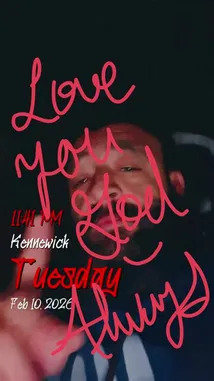 Love
you
God
11:41 PM
Kennewick
Tuesday
Feb 10, 2026
Always